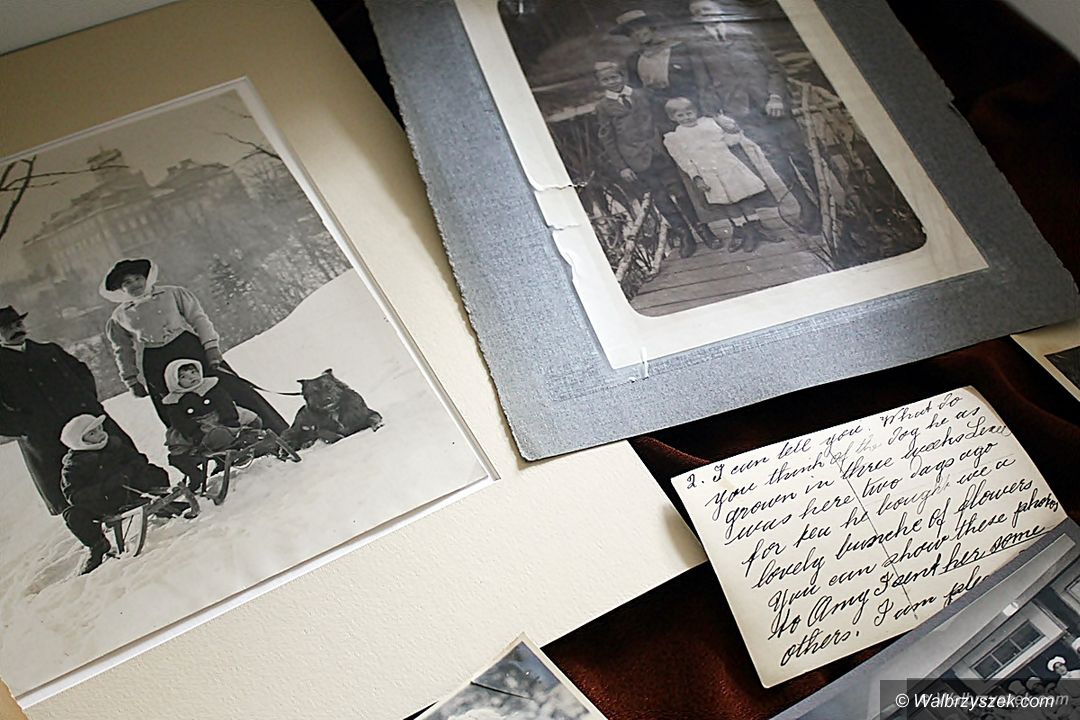 2. I can tell you. What do
you think of the Dog he as
grown in three weeks
was here two days ago
for tea he bought me a
lovely bunche of flowers
You can show these photos
to Amy I sent her some
others. I am
© Walbrzyszek.com